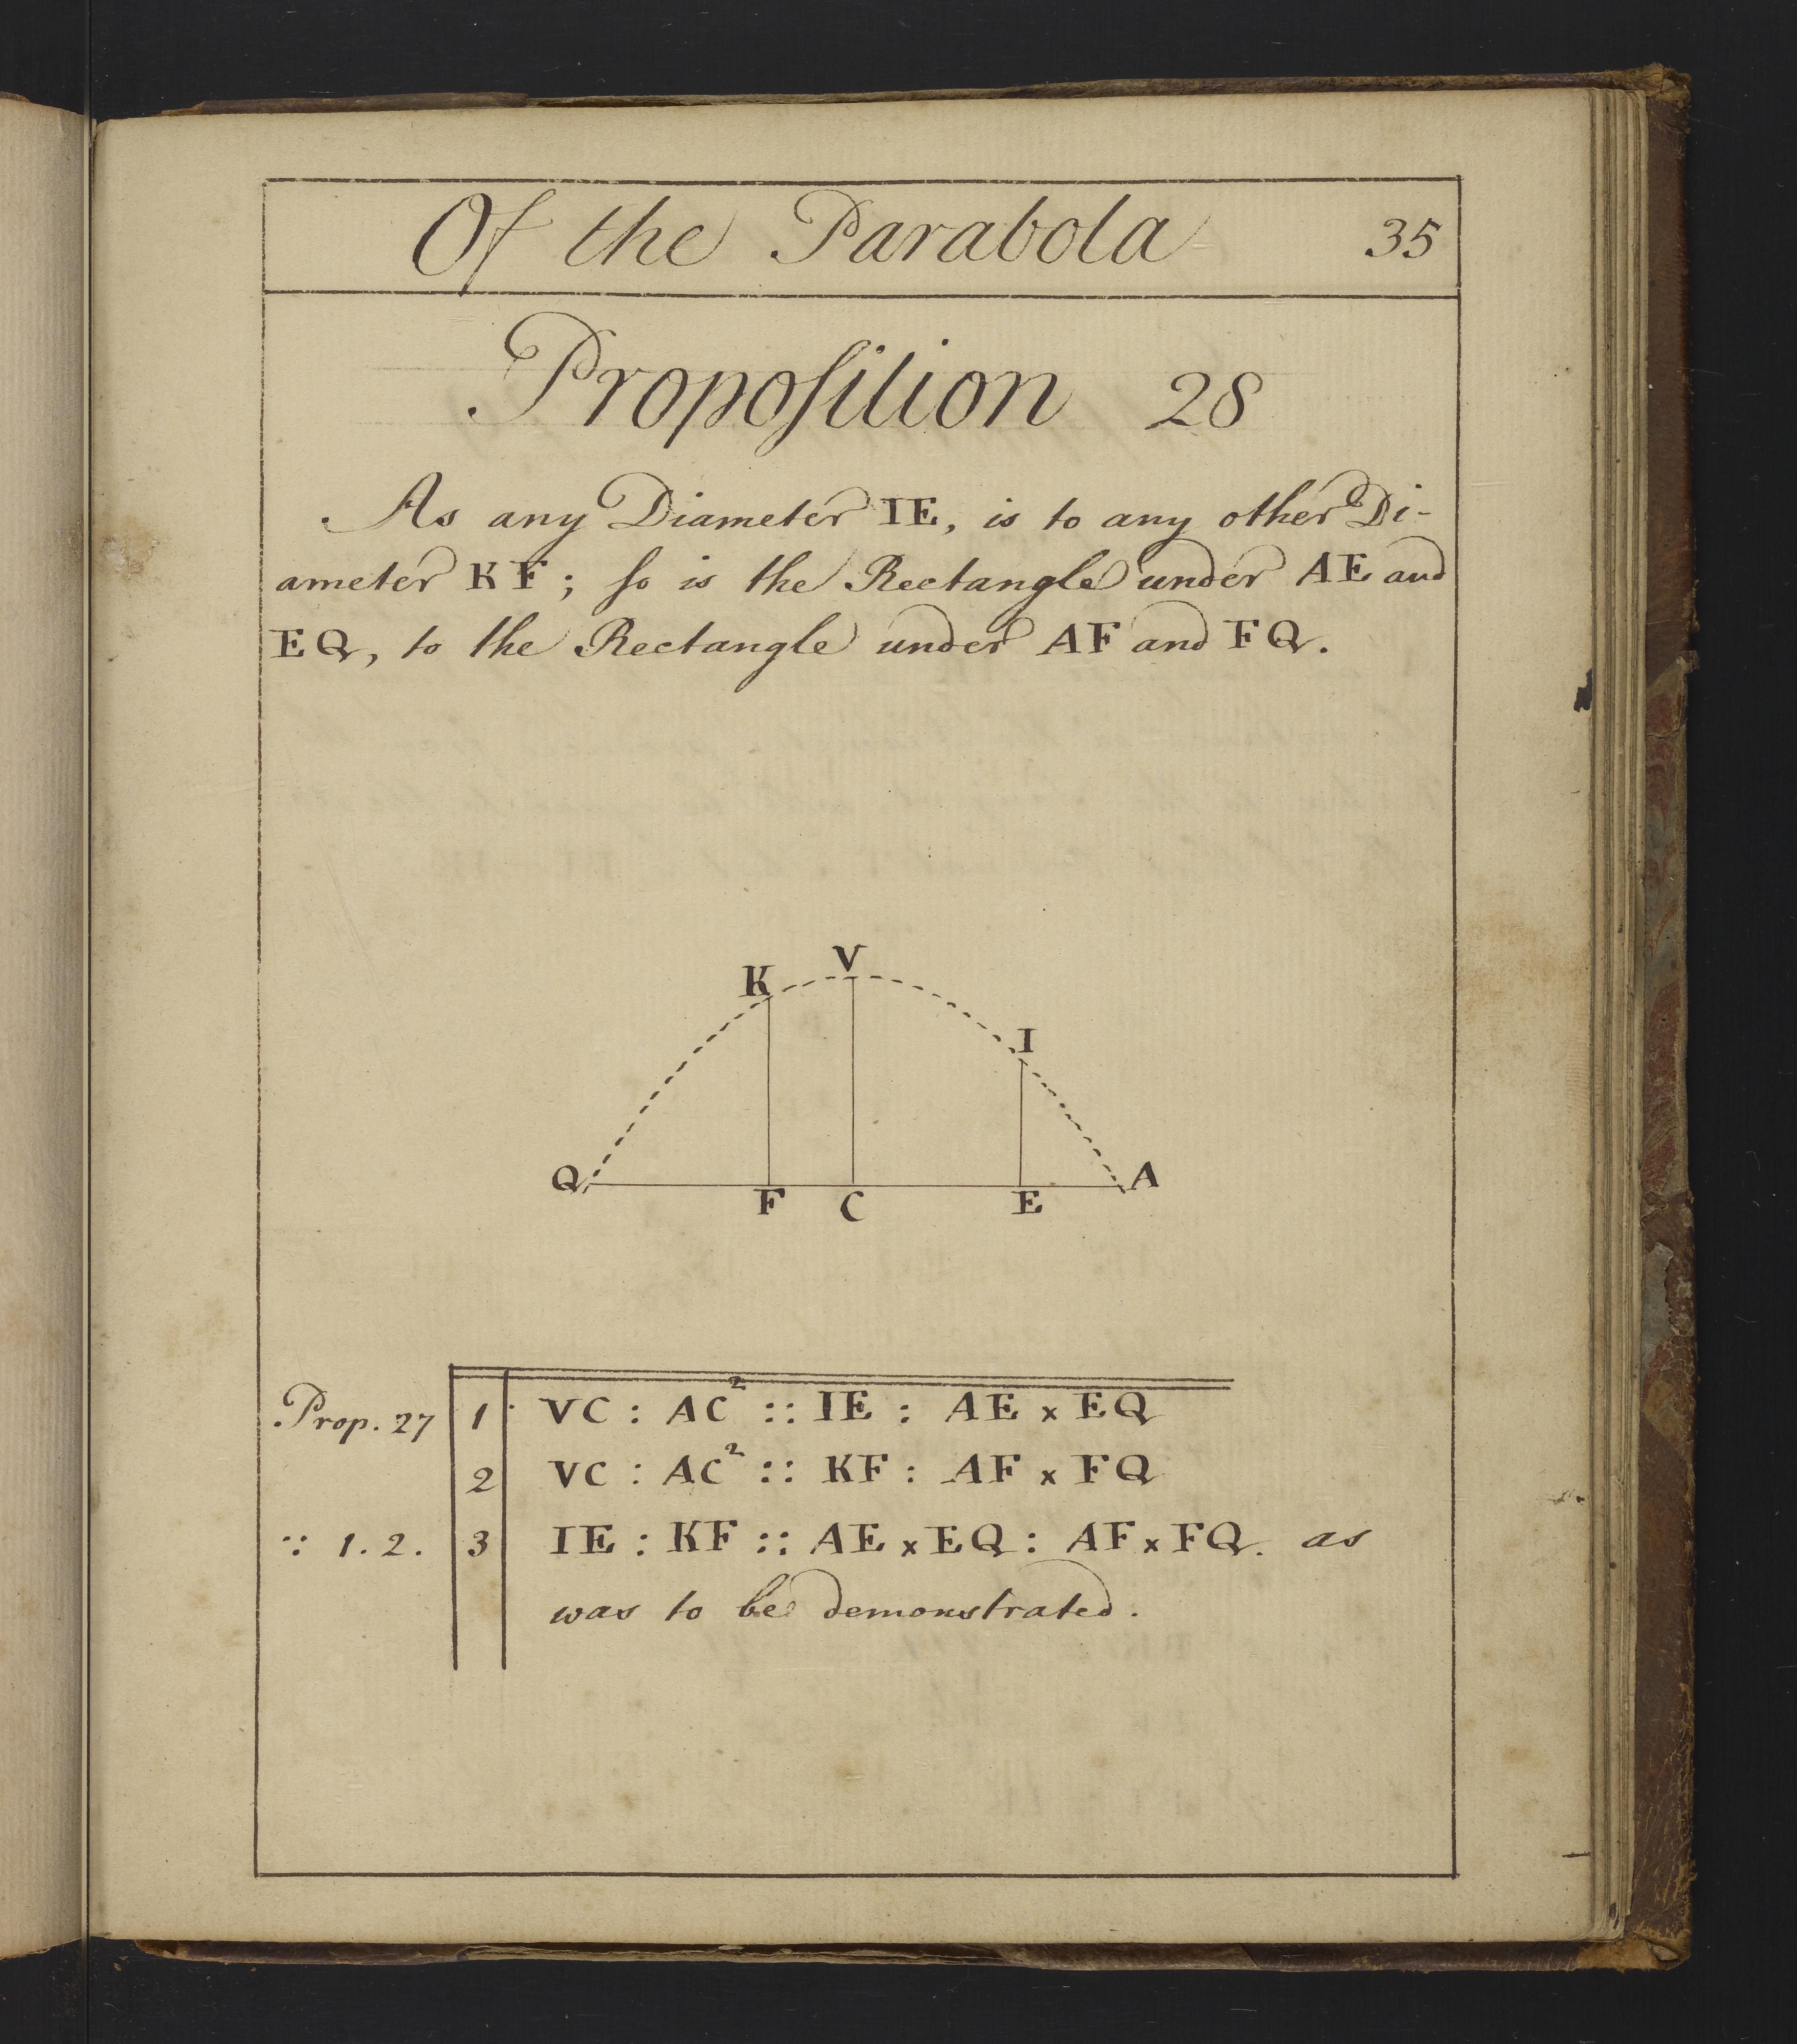 Of the Parabola 35
Propoſition 28
As any Diameter IE, is to any other Di-
ameter KF; ſo is the Rectangle under AE and
EQ, to the Rectangle under AF and FQ.
V
K
I
Q
A
F C E
Prop. 27 1 VC : AC² :: IE : AE × EQ
2 VC : AC² :: KF : AF × FQ
∵ 1. 2. 3 IE : KF :: AE × EQ : AF × FQ. as
was to be demonstrated.